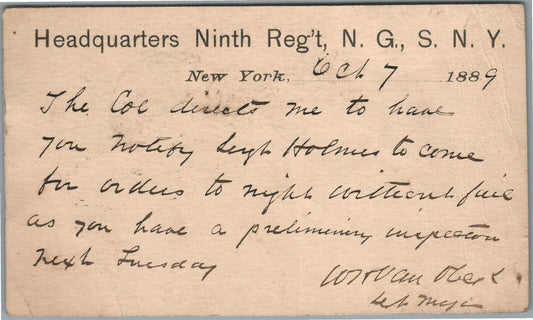 Headquarters Ninth Reg't, N. G., S. N. Y.
New York, Oct 7 1889
The Col directs me to have
you Notify Sergt Holmes to come
for orders to night without fail
as you have a preliminiry inspection
Next Tuesday